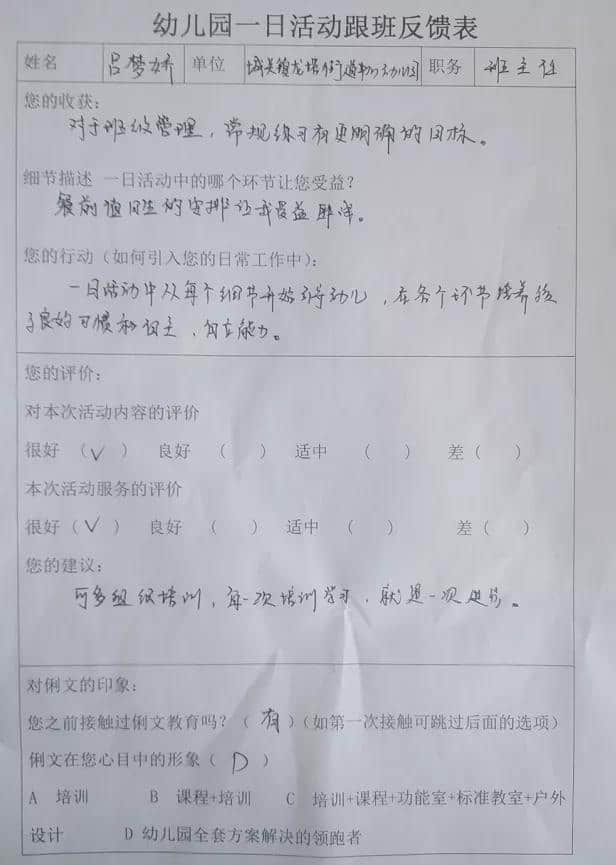 幼儿园一日活动跟班反馈表
姓名 吕梦娇 单位 城关镇龙塔街道 幼儿园 职务 班主任
您的收获:
对于班级管理，常规练习有更明确的目标。
细节描述 一日活动中的哪个环节让您受益?
餐前值日生的安排让我受益匪浅。
您的行动（如何引入您的日常工作中）:
一日活动中从每个细节开始引导幼儿，在各个环节培养孩
子良好习惯和自主，自立能力。
您的评价:
对本次活动内容的评价
很好 （√） 良好 （ ） 适中 （ ） 差（ ）
本次活动服务的评价
很好（√） 良好 （ ） 适中 （ ） 差（ ）
您的建议:
可多组织培训，每一次培训学习，就是一次进步。
对俐文的印象:
您之前接触过俐文教育吗?（有）（如第一次接触可跳过后面的选项）
俐文在您心目中的形象（D）
A 培训 B 课程+培训 C 培训+课程+功能室+标准教室+户外
设计 D 幼儿园全套方案解决的领跑者